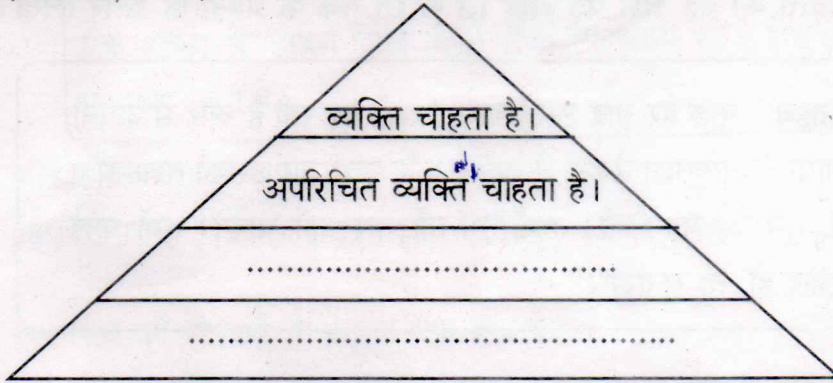 व्यक्ति चाहता है।
अपरिचित व्यक्ति चाहता है।
..........................................
..........................................................